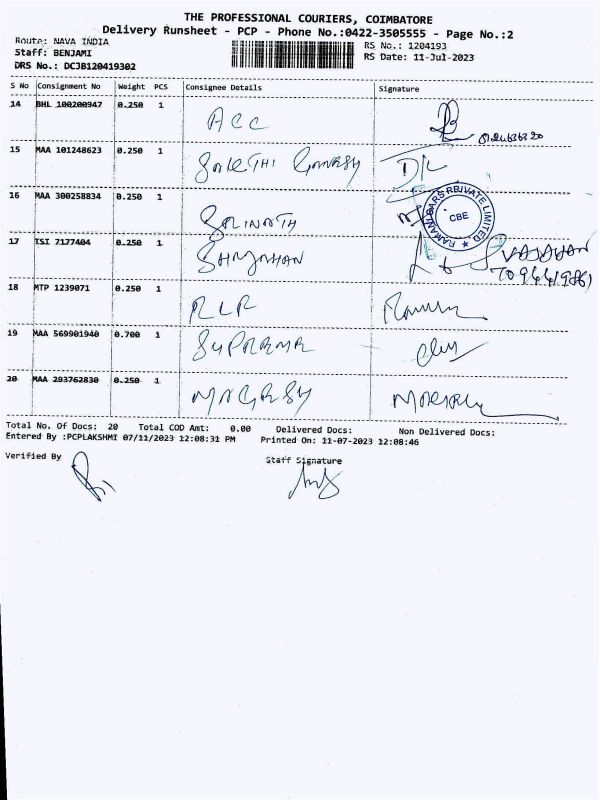 THE PROFESSIONAL COURIERS, COIMBATORE
Delivery Runsheet - PCP - Phone No.:0422-3505555 - Page No.:2
Route: NAVA INDIA
Staff: BENJAMI
DRS No.: DCJB120419302
RS No.: 1204193
RS Date: 11-Jul-2023
S No Consignment No Weight PCS Consignee Details Signature
14 BHL 100200947 0.250 1 ACC
15 MAA 101248623 0.250 1 GANESH
16 MAA 300258834 0.250 1
RAMANI CARS PRIVATE LIMITED ★
CBE
17 ISI 7177404 0.250 1 SHAJAHAN
18 MTP 1239071 0.250 1 RLR
19 MAA 569901940 0.700 1 SUPREME
20 MAA 293762830 0.250 1
Total No. Of Docs: 20 Total COD Amt: 0.00 Delivered Docs: Non Delivered Docs:
Entered By :PCPLAKSHMI 07/11/2023 12:08:31 PM Printed On: 11-07-2023 12:08:46
Verified By Staff Signature